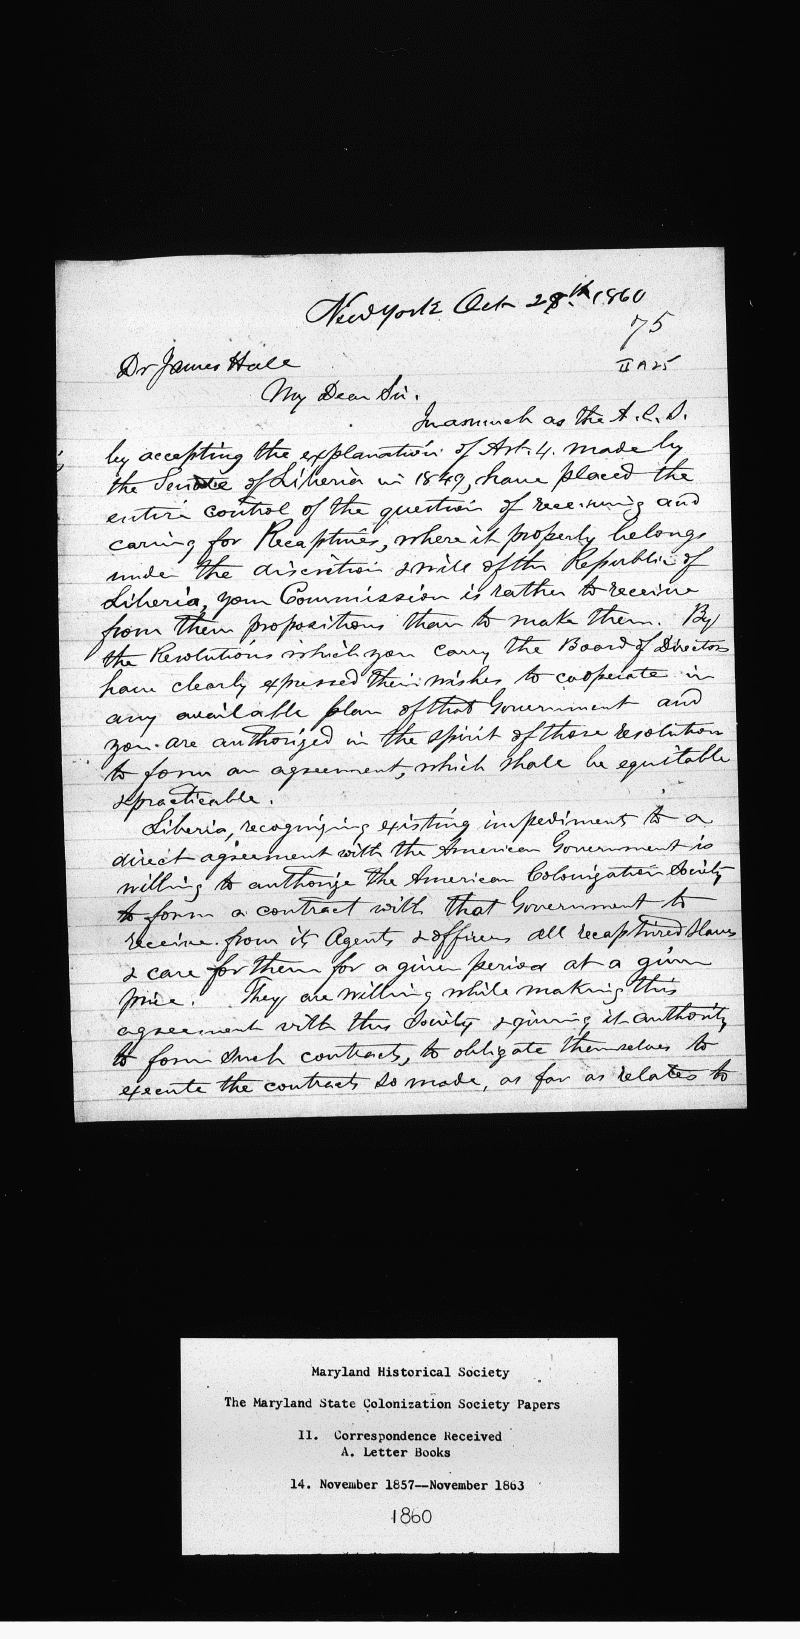 New York Oct 28th 1860
75
II A 25
Dr James Hall
My Dear Sir.
Inasmuch as the A. C. S.
by accepting the explanation of Art. 4. made by
the Senate of Liberia in 1849, have placed the
entire control of the question of receiving and
caring for Recaptives, where it properly belongs
under the discretion & will of the Republic of
Liberia, your Commission is rather to receive
from them propositions than to make them. By
the Resolutions which you carry the Board of Directors
have clearly expressed their wishes to cooperate in
any available plan of that Government and
you are authorized in the spirit of those resolution
to form an agreement, which shall be equitable
& practicable.
Liberia, recognizing existing impediments to a
direct agreement with the American Government is
willing to authorize the American Colonization Society
to form a contract with that Government to
receive from its Agents & officers all recaptured slaves
& care for them for a given period at a given
price. They are willing while making this
agreement with this Society & giving it authority
to form such contracts, to obligate themselves to
execute the contracts so made, as far as relates to
Maryland Historical Society
The Maryland State Colonization Society Papers
11. Correspondence Received
A. Letter Books
14. November 1857--November 1863
1860